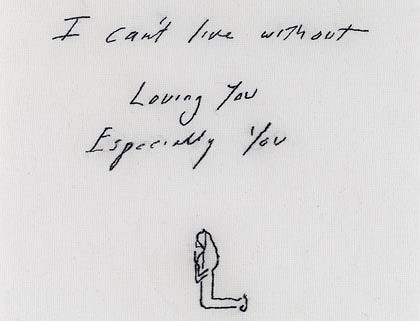 I can't live without
Loving You
Especially You